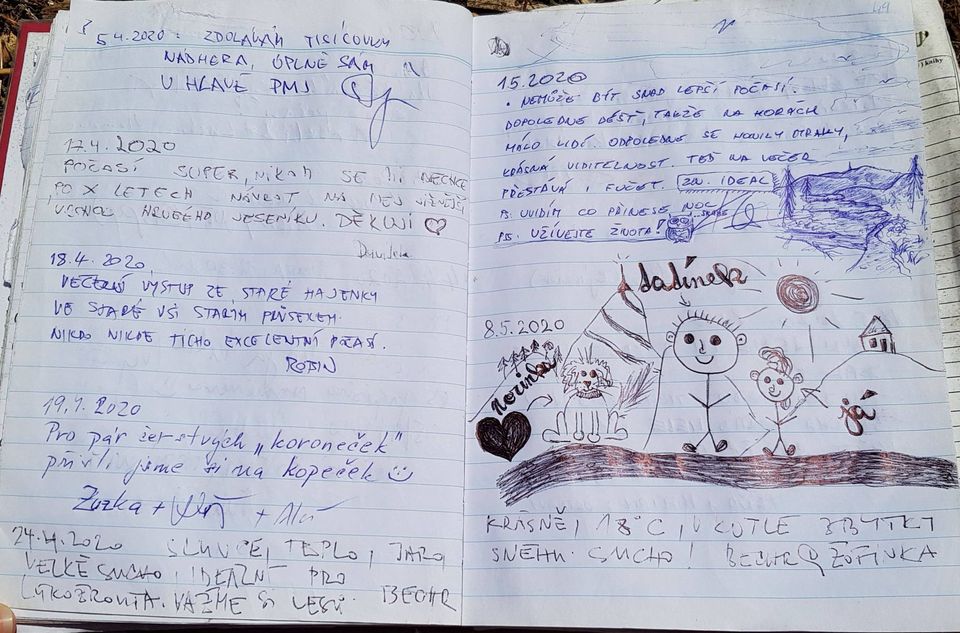 5.4.2020: ZDOLÁVÁM TISÍCOVKY
NÁDHERA, ÚPLNĚ SÁM
V HLAVĚ PMJ
17.4.2020
POČASÍ SUPER, NIKAM SE MI NECHCE
PO X LETECH NÁVRAT NA NEJ
VRCHOL HRUBÉHO JESENÍKU. DĚKUJI
18.4.2020
VEČERNÍ VÝSTUP ZE STARÉ HÁJENKY
VE STARÉ VSI STARÝM PRŮSEKEM.
NIKDO NIKDE TICHO EXCELENTNÍ POČASÍ.
ROBIN
19.4.2020
Pro pár čerstvých „koroneček"
přišli jsme si na kopeček
Zuzka + +
24.4.2020 SLUNCE, TEPLO, JARO,
VELKÉ SUCHO, IDEÁLNÍ PRO
LÝKOŽROUTA. VAŽME SI LESŮ. BECHR
49
knihy
1.5.2020
• NEMŮŽE BÝT SNAD LEPŠÍ POČASÍ.
DOPOLEDNE DÉŠŤ, TAKŽE NA HORÁCH
MÁLO LIDÍ. ODPOLEDNE SE HONILY MRAKY,
KRÁSNÁ VIDITELNOST. TEĎ NA VEČER
PŘESTÁVÁ I FUČET. IDEÁL
PS. UVIDÍM CO PŘINESE NOC
PS. UŽÍVEJTE ŽIVOTA!
dadínek
8.5.2020
Norinka
já
KRÁSNĚ, 18°C, V KOTLE ZBYTKY
SNĚHU. SUCHO! BECHR @ ŽOFINKA